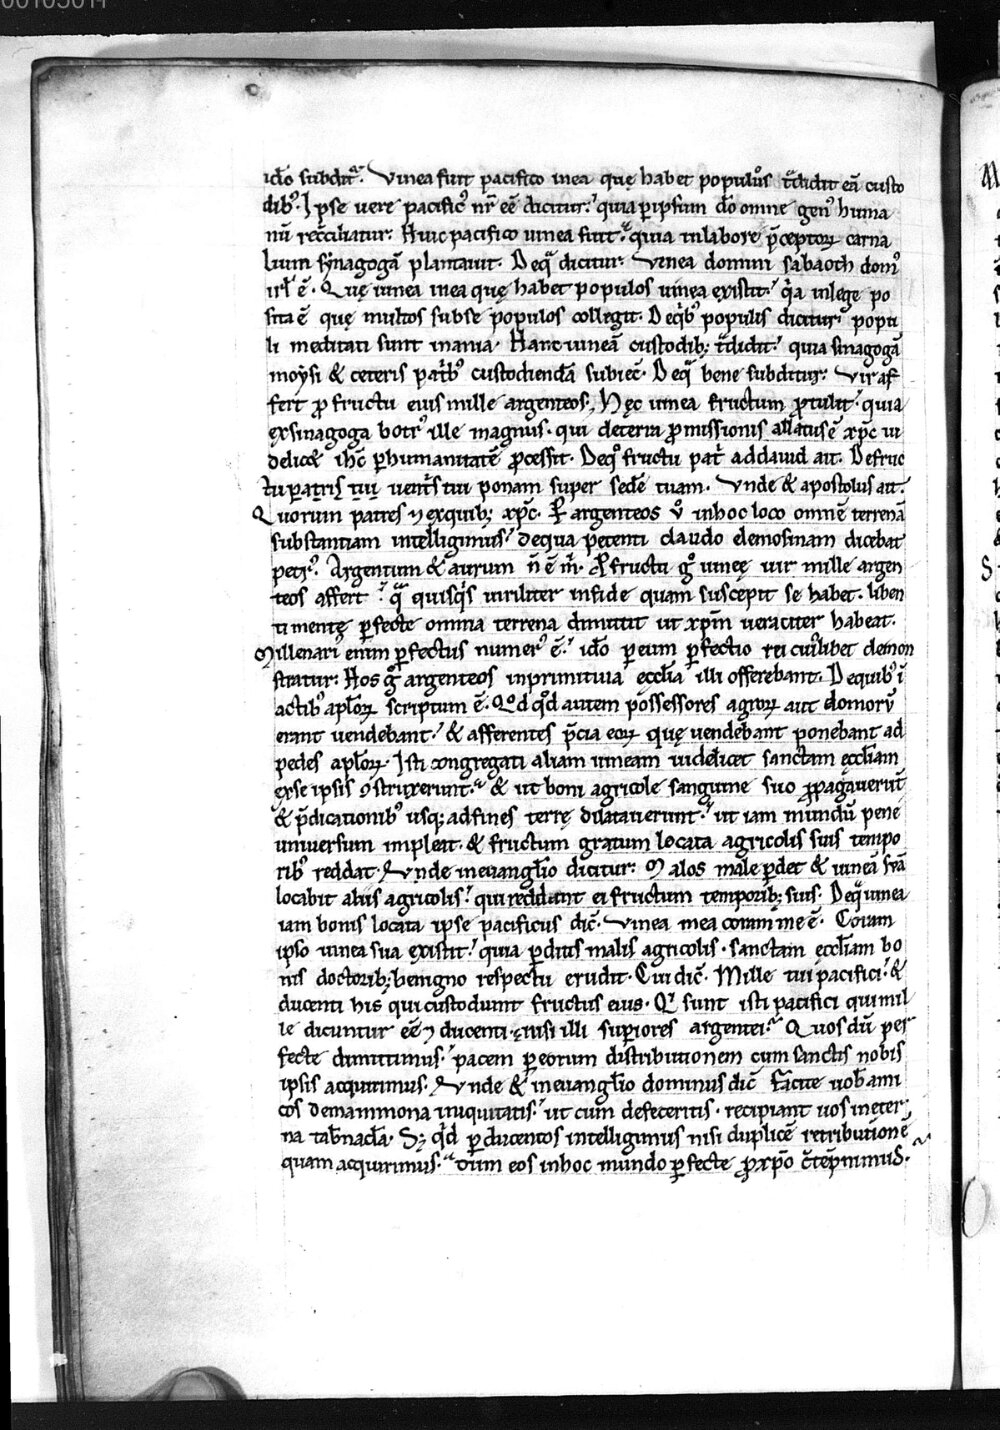 00105011
idō subditᷓ. Vinea fuit pacifico mea quę habet populos t̄didit eā custo
dibꝰ. Ipse uere pacificꝰ nr̄ eē dicitur. quia ꝑ ipsum dō omne genꝰ huma
nū recc̄iliatur. Huic pacifico uinea fuit. quia in labore p̄ceptoꝝ carna
lium synagogā plantauit. De qᷓ dicitur. Vinea domini sabaoth domꝰ
irl̄ ē. Quę uinea mea quę habet populos uinea existit. qᷓa in lege po
sita ē quę multos sub se populos collegit. De qͥbꝰ populis dicitur. popu
li meditati sunt inania. Hanc uineā custodib; t̄didit. quia sinagogā
moysi & ceteris pat̄bꝰ custodiendā subiec̄. De qᷓ bene subditur. Vir af
fert ꝓ fructu eius mille argenteos. Hęc uinea fructum ꝓtulit. quia
ex sinagoga botrꝰ ille magnus. qui de terra ꝓmissionis allatus ē xp̄c ui
delicet ih̄c ꝑ humanitatē ꝓcessit. De qͦ fructu pat̄ ad dauid ait. De fruc
tu patris tui uent̄s tui ponam super sedē tuam. Vnde & apostolus ait.
Quorum patres ⁊ ex quib; xp̄c. Per argenteos ů in hoc loco omnē terrenā
substantiam intelligimus. de qua petenti claudo elemosinam dicebat
petrꝰ. Argentum & aurum n̄ ē m̄. Pro fructu gͦ uineę uir mille argen
teos affert. qᷓ quisqͥs uiriliter in fide quam suscepit se habet. liben
ti mente ꝑfecte omnia terrena dimittit ut xp̄m ueraciter habeat.
Millenariꝰ enim ꝑfectus numerꝰ ē. idō ꝑ eum ꝑfectio rei cuiꝰlibet demon
stratur. Hos gͦ argenteos in primitiua ecclīa illi offerebant. De quibꝰ ī
actibꝰ apl̄oꝝ scriptum ē. Qd̄ qͦd autem possessores agroꝝ aut domorū
erant uendebant. & afferentes p̄cia eoꝝ quę uendebant ponebant ad
pedes apl̄oꝝ. Isti congregati aliam uineam uidelicet sanctam eccl̄iam
ex se ipsis ꝯstruxerunt. & ut boni agricole sanguine suo ꝓpagauerunt
& p̄dicationibꝰ usq; ad fines terrę dilatauerunt. ut iam mundū pene
uniuersum impleat. & fructum gratum locata agricolis suis tempo
ribꝰ reddat. Vnde in euangl̄io dicitur. Malos male ꝑdet & uineā suā
locabit aliis agricolis. qui reddant ei fructum temporib; suis. De qᷓ uinea
iam bonis locata ipse pacificus dic̄. Vinea mea coram me ē. Coram
ipso uinea sua existit. quia ꝑditis malis agricolis. sanctam eccl̄iam bo
nis doctorib; benigno respectu erudit. Cui dic̄. Mille tui pacifici. &
ducenti his qui custodiunt fructus eius. Qͥ sunt isti pacifici qui mil
le dicuntur eē ⁊ ducenti. nisi illi superiores argentei. Quos dū per
fecte dimittimus. pacem ꝑ eorum distributionem cum sanctis nobis
ipsis acquirimus. Vnde & in euangl̄io dominus dic̄. Facite uob̄ ami
cos de mammona iniquitatis. ut cum defeceritis. recipiant uos in eter
na tab̄nacl̄a. S; qͥd ꝑ ducentos intelligimus nisi duplicē retributionē
quam acquirimus. dum eos in hoc mundo ꝑfecte ꝓ xp̄o c̄tēpnimus.